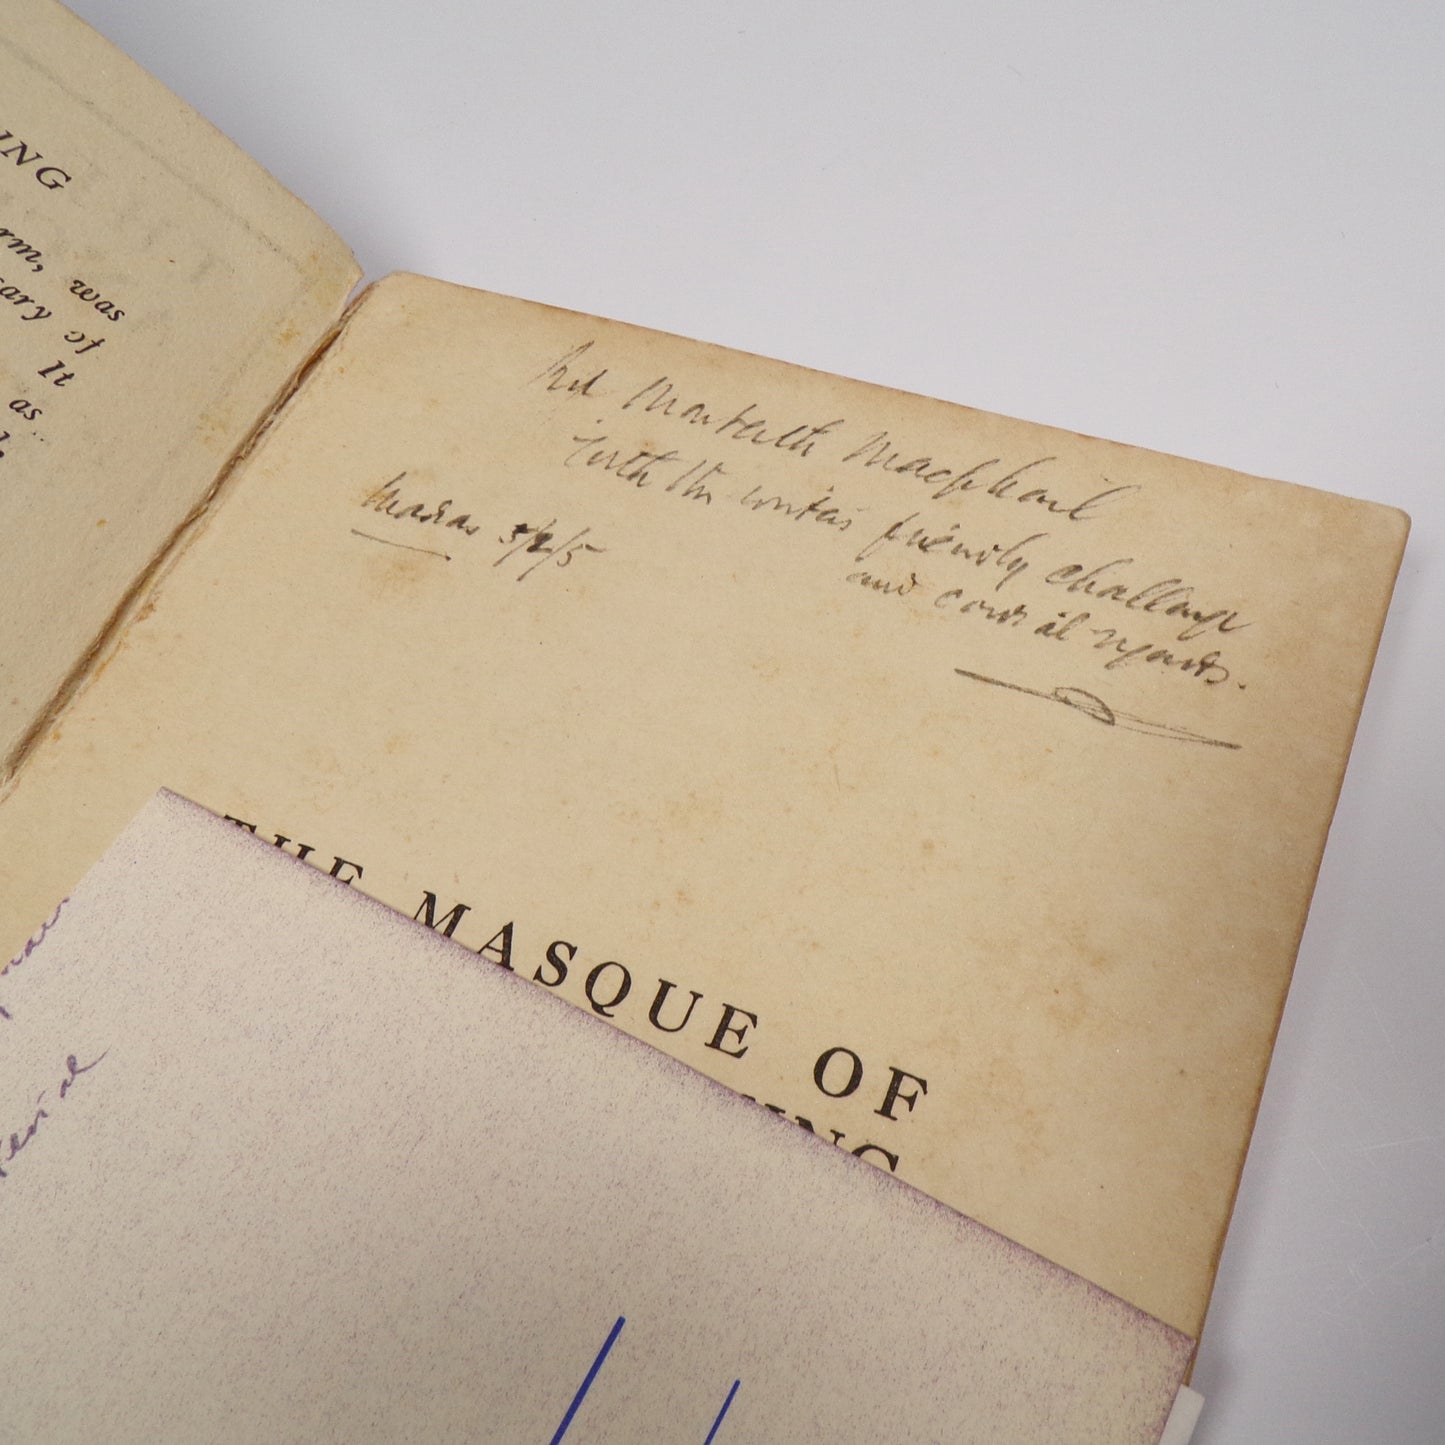 ING
rm, was
ary of
It
as
Monteith Macphail
with the writer's friendly challenge
and cordial regards.
Madras 5/2/5
THE MASQUE OF